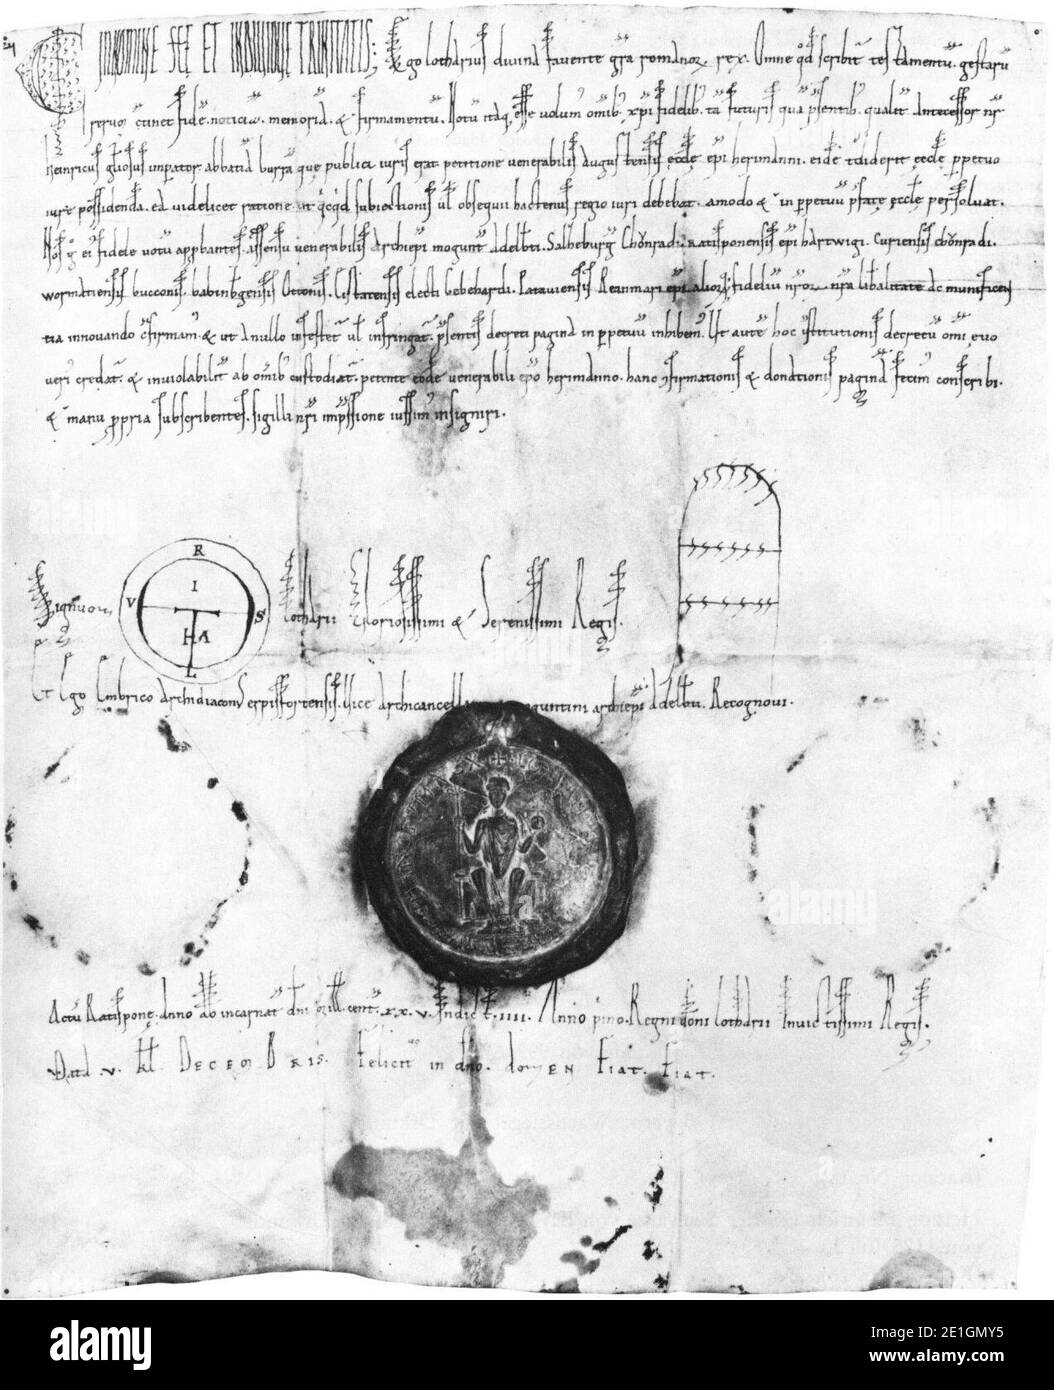 IN NOMINE SCE ET INDIVIDUE TRINITATIS; Ego lotharius divina favente gra romanor rex. Omne qd scribit testamentu gestaru
servor etinet fide. noticia. memoria. & firmamentu. Notu itaq esse volum omib xpi fidelib. ta futuris qua psentib. qualit antecessor nr
heinricus gliosus impator abbatia burra que publici iuris erat. petitione venerabilis augustensis eccle epi herimanni. eide tdiderit eccle ppetuo
iure possidenda. ea videlicet ratione ut qcqd subiectionis ul obsequii hactenus regio iuri debebat. amodo & in ppetuu pfate eccle psolvat.
Nos g ei fidele votu appbantes. assensu venerabilis archiepi mogunt adelbti. Salzeburg Chonradi. ratisponensis epi hartwigi. curiensis chonradi.
wormatiensis bucconis. babinbgensis Ottonis. Eistatensis electi Gebehardi. Pataviensis Reanmari epi. alior fideliu nror nra libalitate ac munificen
tia innovando cfirmam. & ut a nullo infestet ul infringat. psentis decreti pagina in ppetuu inhibem. Ut aute hoc cstitutionis decretu omi evo
veri credat. & inviolabilit ab omib custodiat. petente eode venerabili epo herimanno. hanc cfirmationis & donationis pagina fecim conscribi.
& manu ppria subscribentes. sigilli nri impssione iussim insigniri.
Signum
R
V I S
H A
L
lotharii Gloriosissimi & Serenissimi Regis.
Et Ego Embrico Archidiacon Erpisfortensis. Vice Archicancell oguntini archiepi Adelbti. Recognovi.
Actu Ratispone. anno ab incarnat dni mill. cent. xx.v. Indict. IIII. Anno pmo. Regni doni lotharii Invictissimi Regis.
Data .v. kl. DECEMBRIS. Felicit in dno. do EN FIAT. FIAT.
alamy
Image ID: 2E1GMY5
www.alamy.com